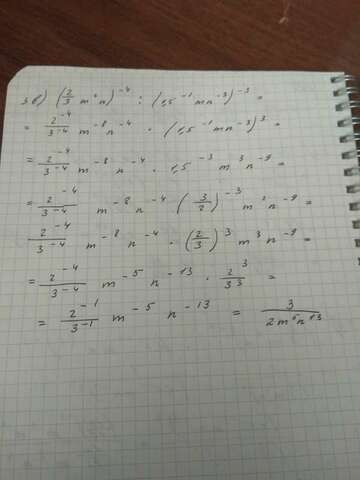 3в) (2/3 m²n)⁻⁴ : (1,5⁻¹ mn⁻³)⁻³ =
= 2⁻⁴/3⁻⁴ m⁻⁸ n⁻⁴ · (1,5⁻¹ mn⁻³)³ =
= 2⁻⁴/3⁻⁴ m⁻⁸ n⁻⁴ · 1,5⁻³ m³ n⁻⁹ =
= 2⁻⁴/3⁻⁴ m⁻⁸ n⁻⁴ · (3/2)⁻³ m³ n⁻⁹ =
2⁻⁴/3⁻⁴ m⁻⁸ n⁻⁴ · (2/3)³ m³ n⁻⁹ =
= 2⁻⁴/3⁻⁴ m⁻⁵ n⁻¹³ · 2³/3³ =
= 2⁻¹/3⁻¹ m⁻⁵ n⁻¹³ = 3/2m⁵n¹³